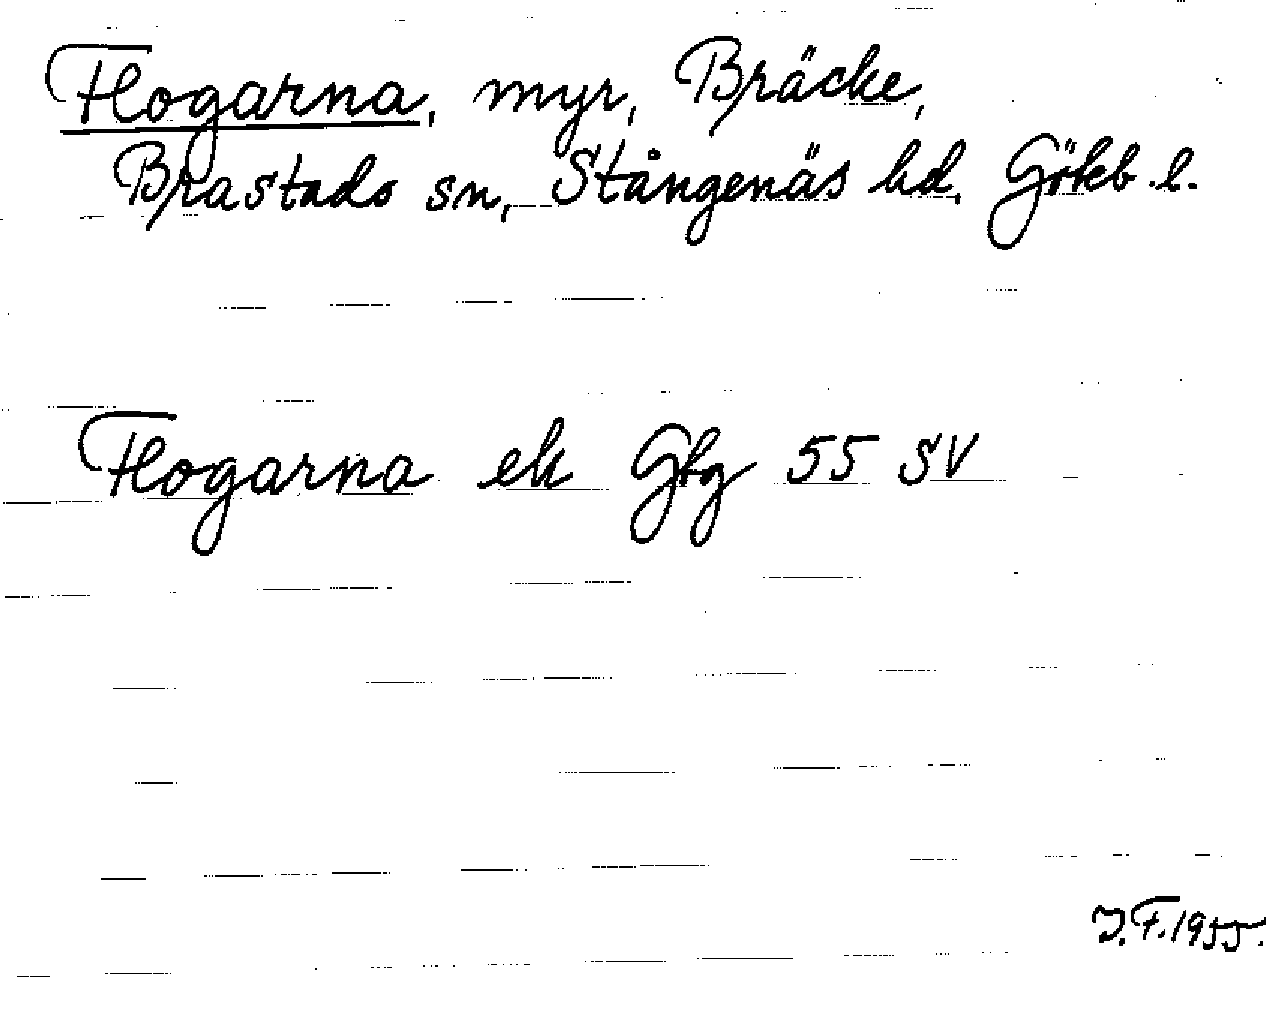 Flogarna, myr, Bräcke,
Brastads sn, Stångenäs hd. Göteb. l.
Flogarna ek Gfg 55 SV
J.F. 1955.